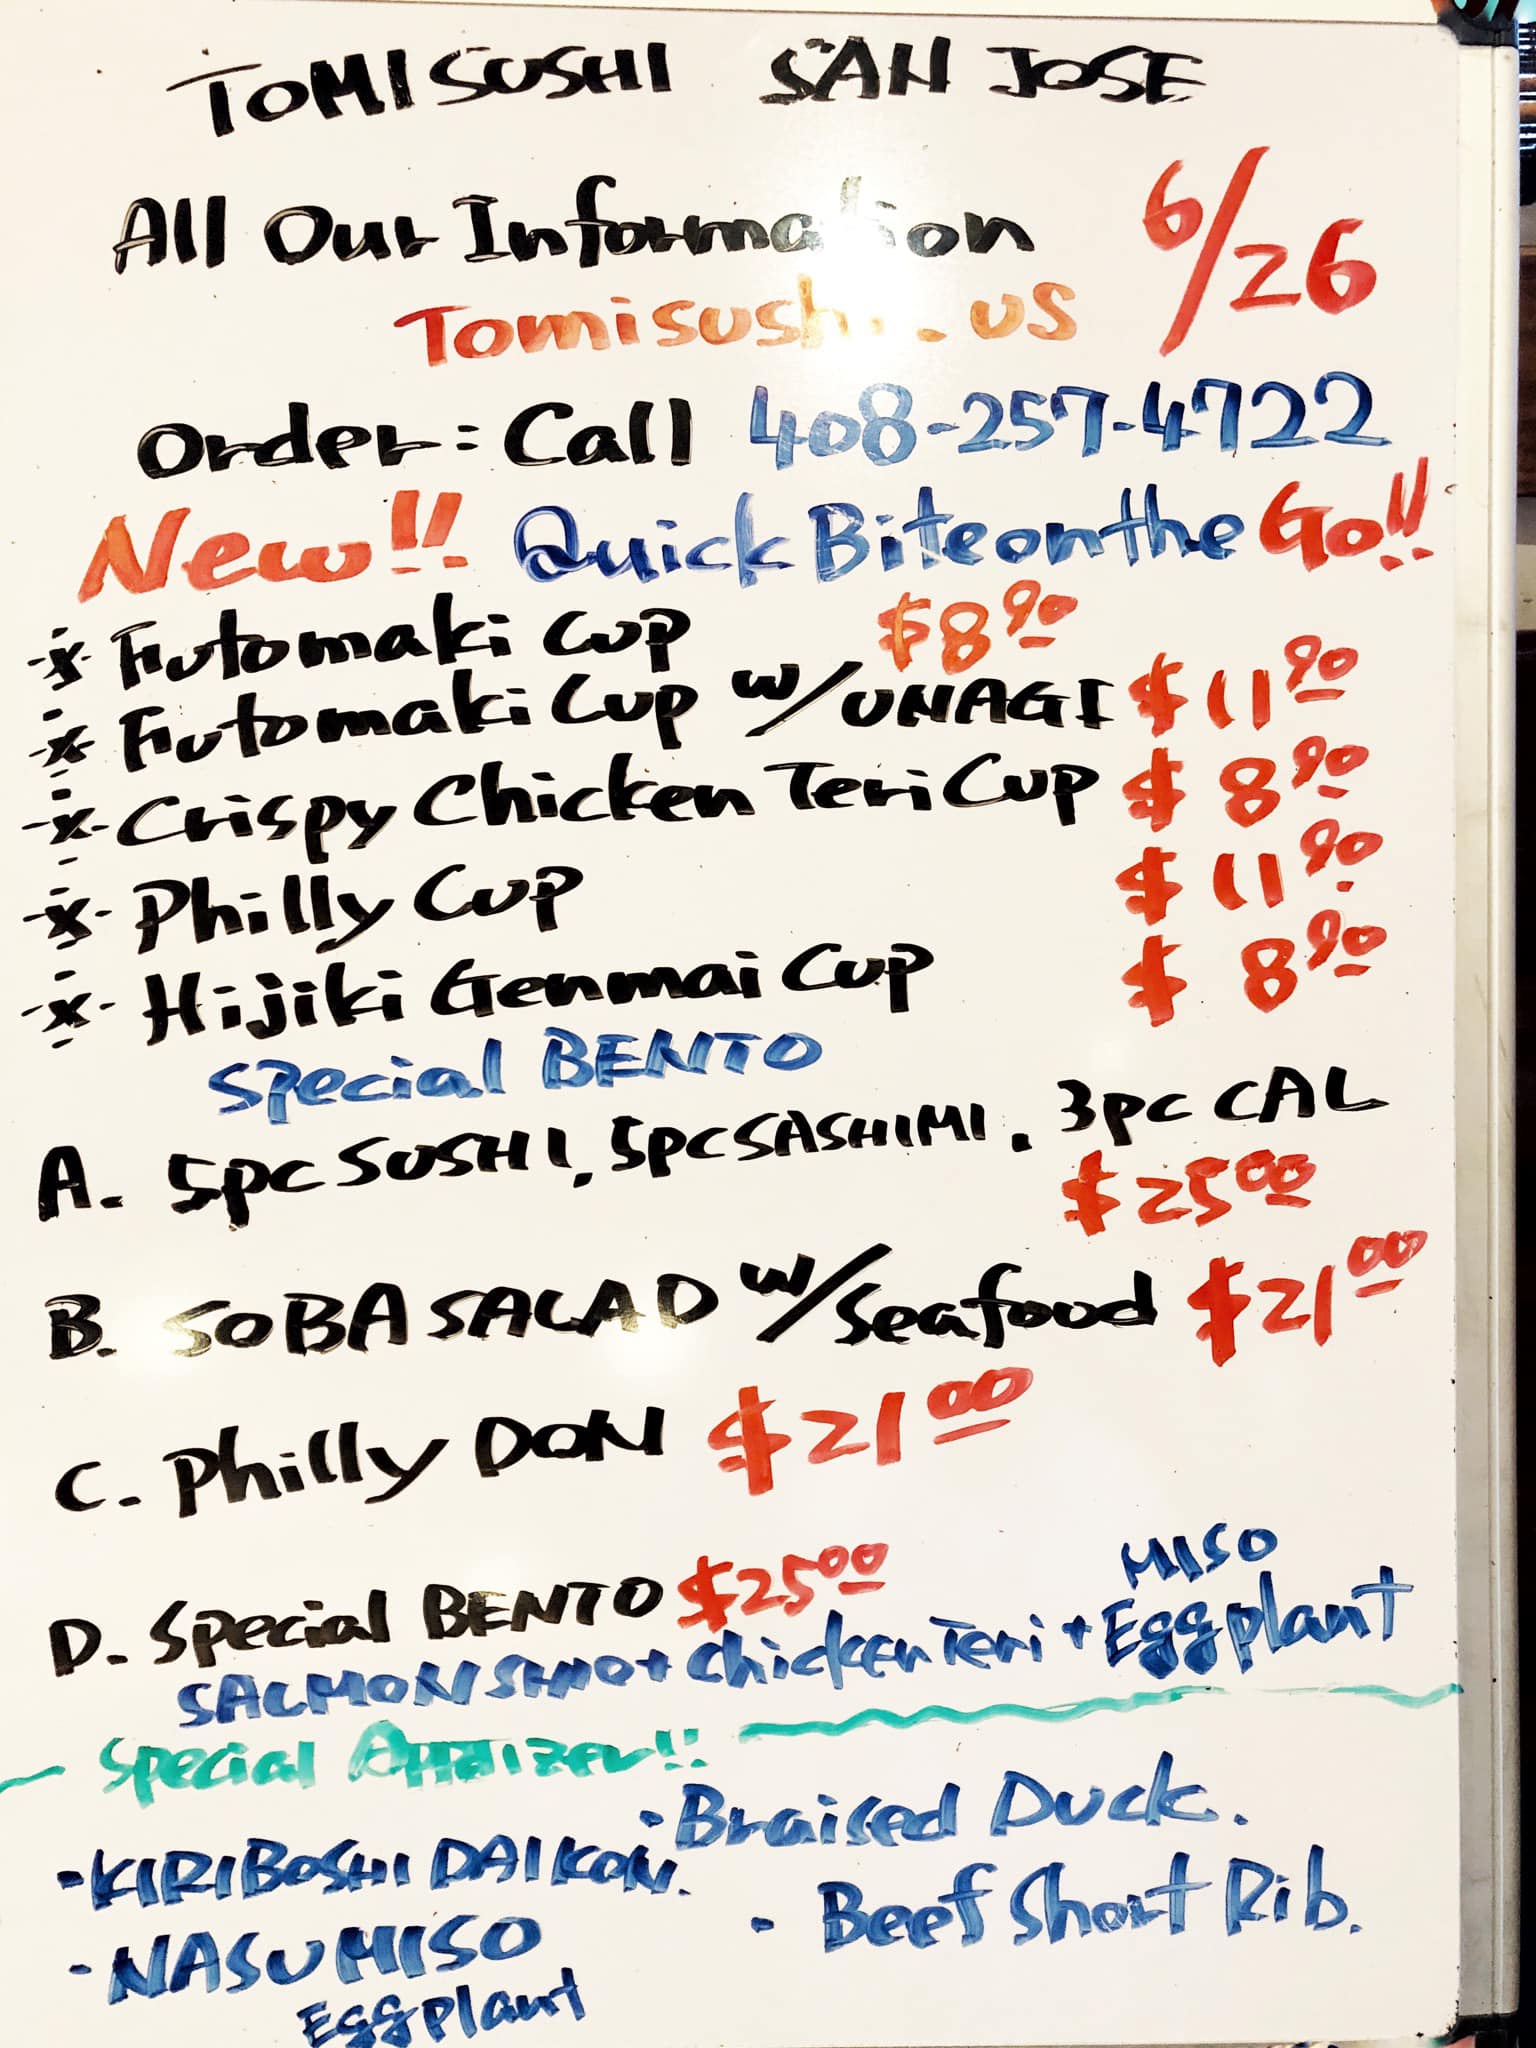 TOMISUSHI SAN JOSE
All Our Information 6/26
Tomisushi.us
Order: Call 408-257-4722
New!! Quick Bite on the Go!!
※ Futomaki Cup $8.90
※ Futomaki Cup w/UNAGI $11.90
※ Crispy Chicken Teri Cup $8.90
※ Philly Cup $11.90
※ Hijiki Genmai Cup $8.90
Special BENTO
A. 5pc SUSHI, 5pc SASHIMI. 3pc CAL
$25.00
B. SOBA SALAD w/Seafood $21.00
C. Philly DON $21.00
D. Special BENTO $25.00
SALMON SHIO + Chicken Teri + MISO Eggplant
Special Appetizer!!
· KIRIBOSHI DAIKON.
· Braised Duck.
· NASU MISO
Eggplant
· Beef Short Rib.